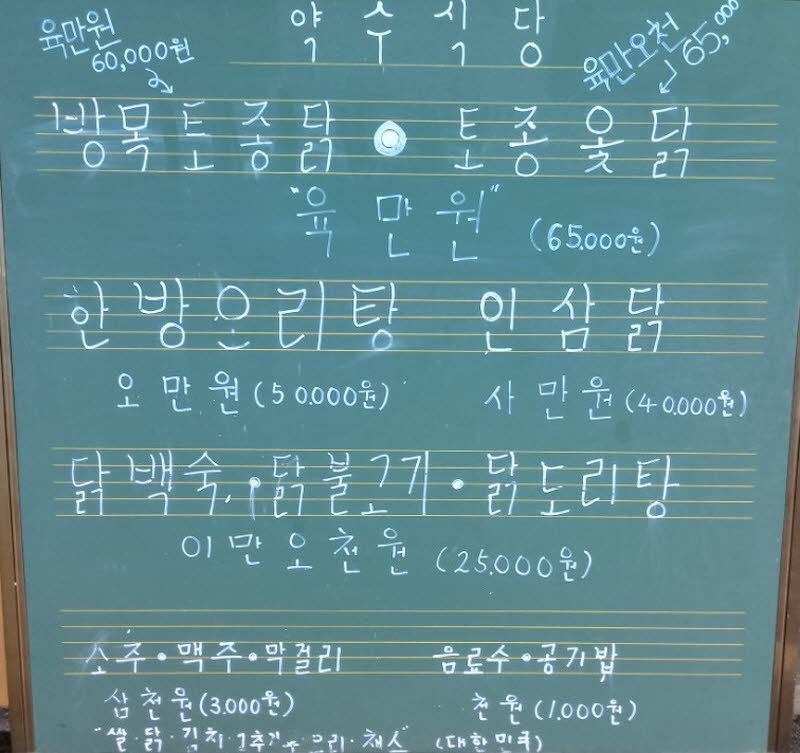 약수식당
육만원
60,000원
육만오천
65,000
방목토종닭 토종옻닭
"육만원" (65.000원)
한방오리탕 인삼닭
오만원(50.000원) 사만원(40.000원)
닭백숙·닭불고기·닭도리탕
이만오천원 (25.000원)
소주·맥주·막걸리 음료수·공기밥
삼천원(3.000원) 천원(1.000원)
"쌀·닭·김치·고추가루·오리·채소" (대한민국)